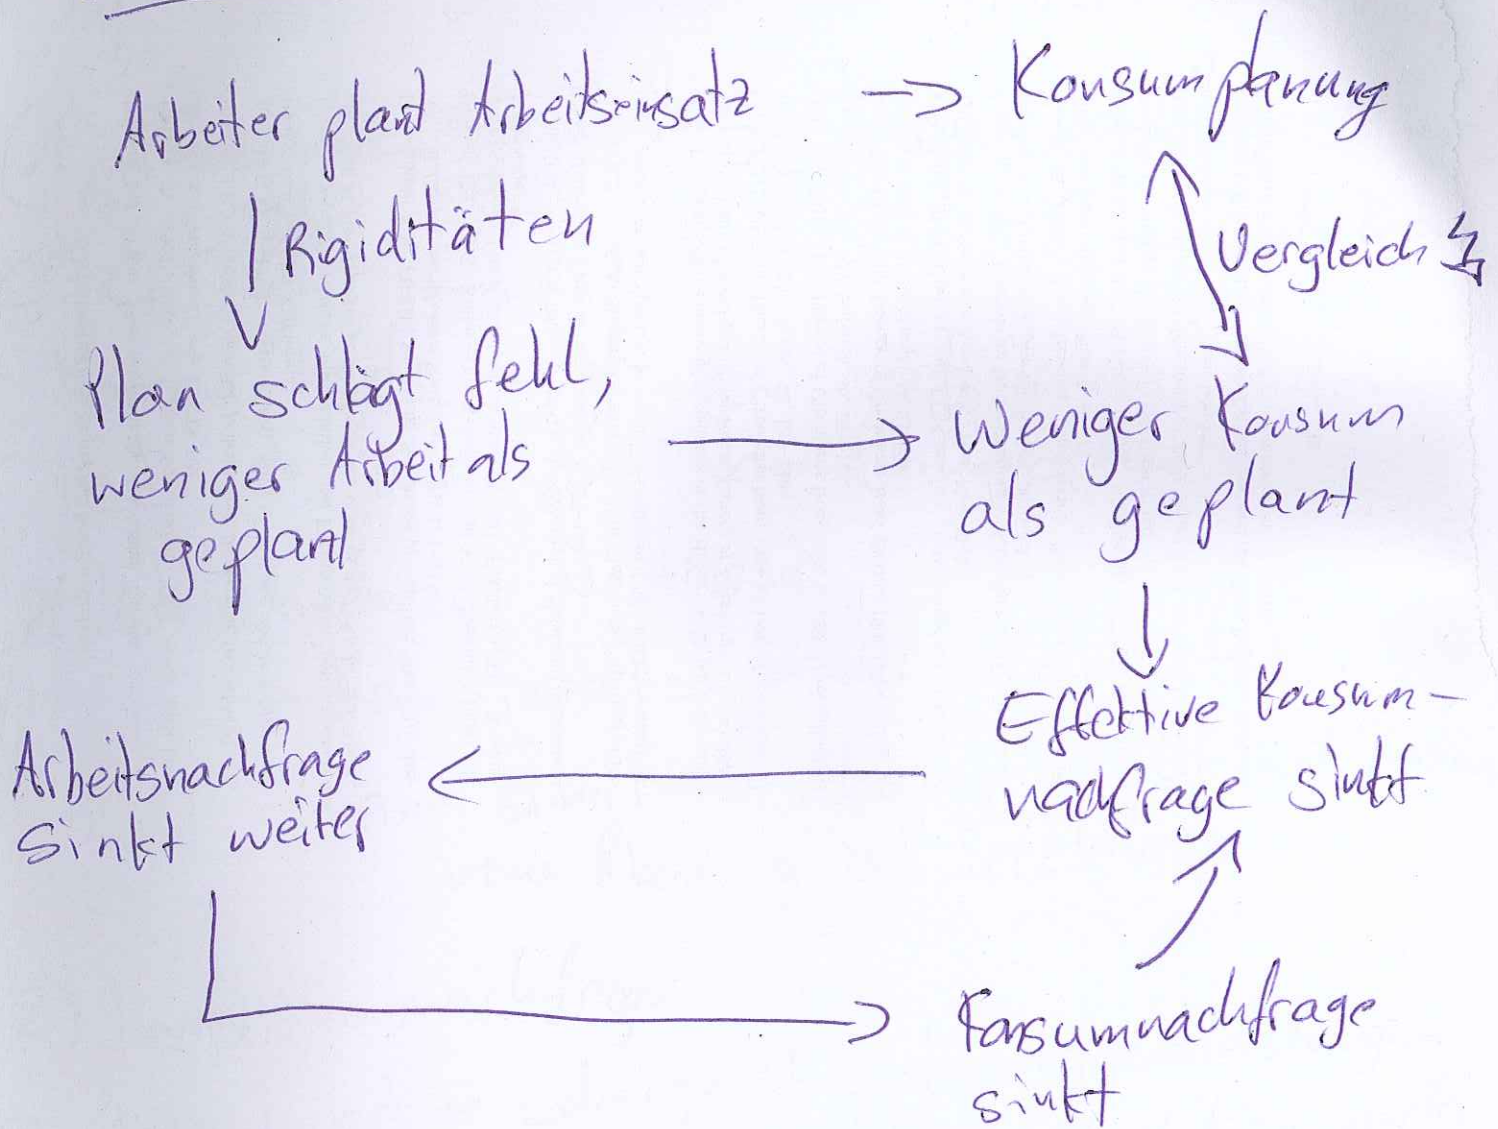 Arbeiter plant Arbeitseinsatz -> Konsumplanung
Rigiditäten
Vergleich
Plan schlägt fehl,
weniger Arbeit als
geplant
Weniger Konsum
als geplant
Effektive Konsum-
nachfrage sinkt
Arbeitsnachfrage
sinkt weiter
Konsumnachfrage
sinkt